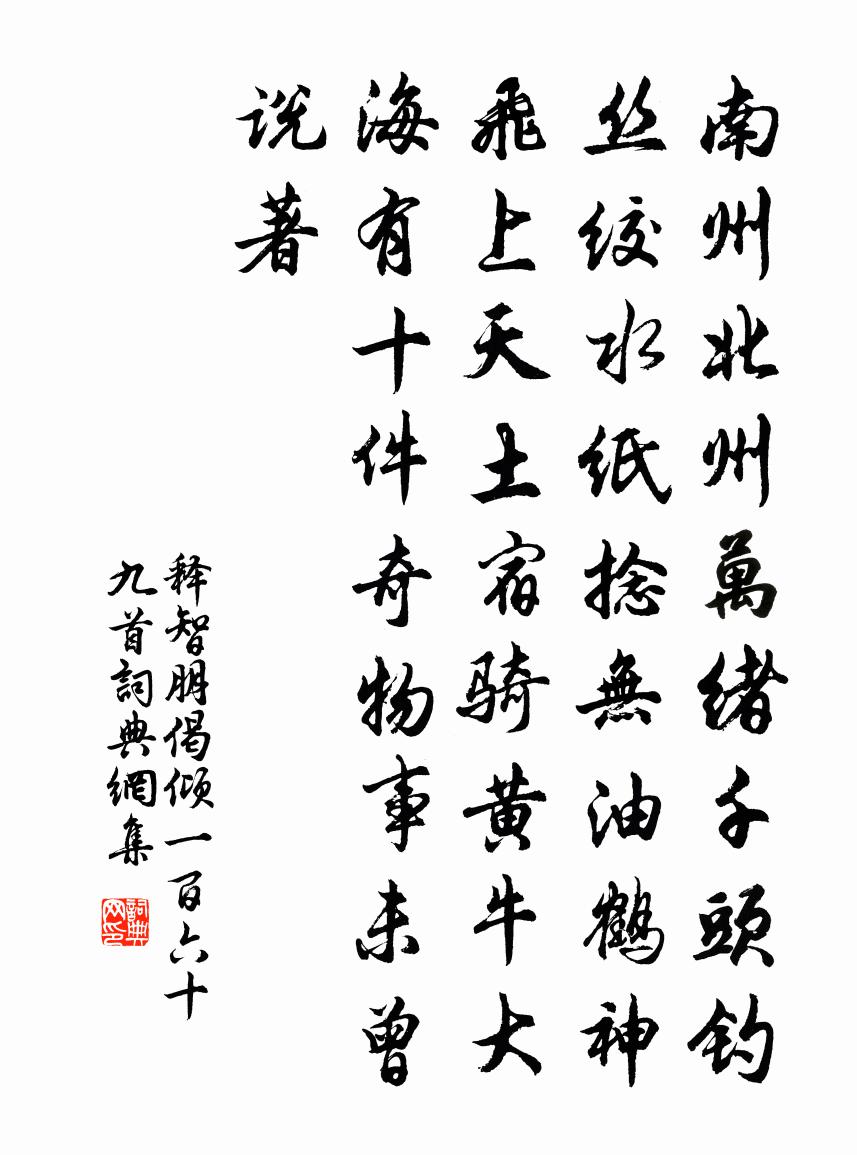 南州北州萬緒千頭釣
丝绞水纸捻無油鶴神
飛上天土宿骑黄牛大
海有十件奇物事未曾
说著
释智朋偈倾一百六十
九首詞典網集
詞典网印